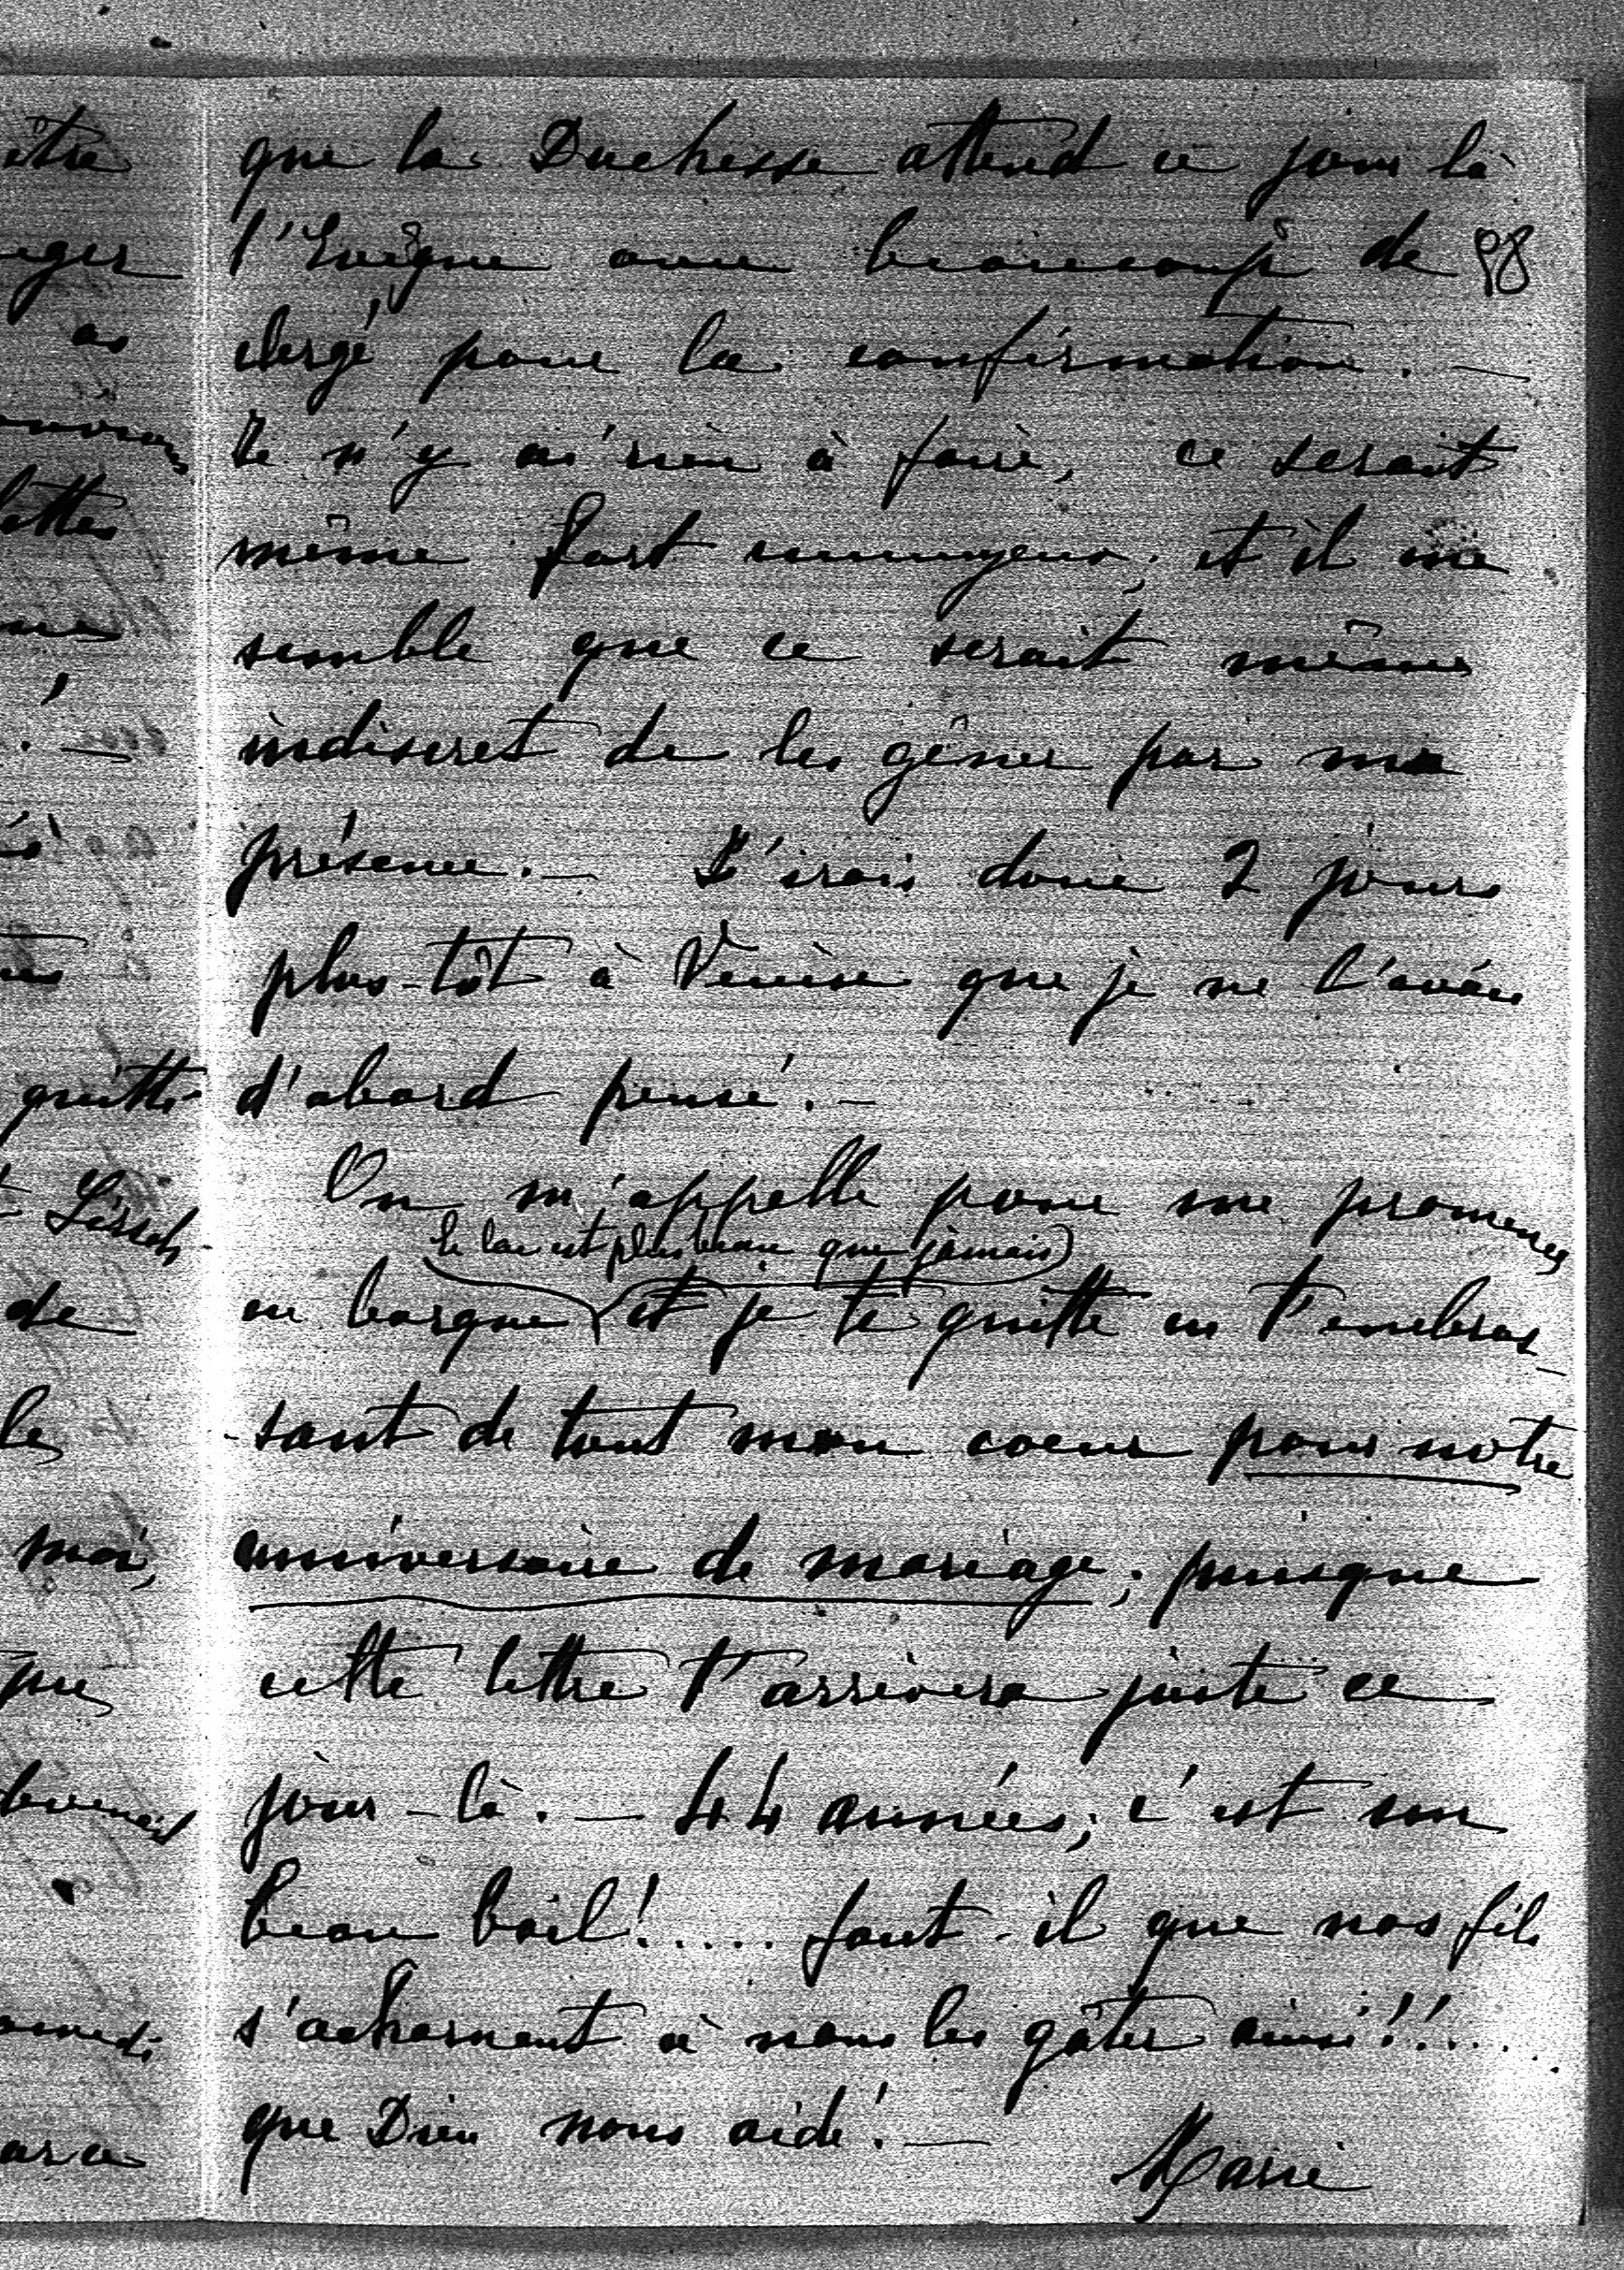 que la Duchesse attend ce jour là
l'Evêque avec beaucoup de
98
clergé pour la confirmation. —
Je n'y ai rien à faire, ce serait
même fort ennuyeux, et il me
semble que ce serait même
indiscret de les gêner par ma
présence. — J'irais donc 2 jours
plus-tôt à Venise que je ne l'avais
d'abord pensé. —
On m'appelle pour me promener
(le lac est plus beau que jamais)
en barque et je te quitte en t'embras-
-sant de tout mon coeur pour notre
anniversaire de mariage, puisque
cette lettre t'arrivera juste ce
jour-là. — 44 années, c'est un
beau bail!..... faut-il que nos fils
s'acharnent à nous les gâter ainsi!!.....
que Dieu nous aide! —
Marie
être
as
quitte
de
les
moi,